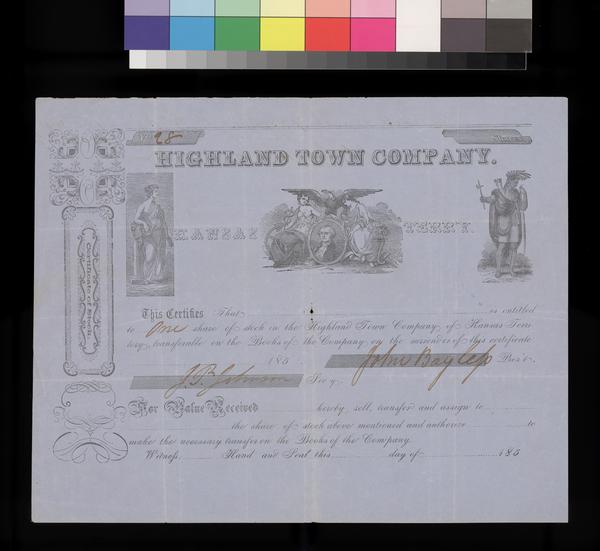 No. 28
Shares
HIGHLAND TOWN COMPANY.
KANSAS TERR'Y.
Certificate of Stock.
This Certifies That is entitled
to One share of stock in the Highland Town Company, of Kansas Terri
tory, transferable on the Books of the Company on the surrender of this certificate
185 John Bayless Pres't.
J. P. Johnson Sec'y.
For Value Received hereby, sell, transfer and assign to
the share of stock above mentioned and authorize to
make the necessary transfer on the Books of the Company.
Witness, Hand and Seal this day of 185